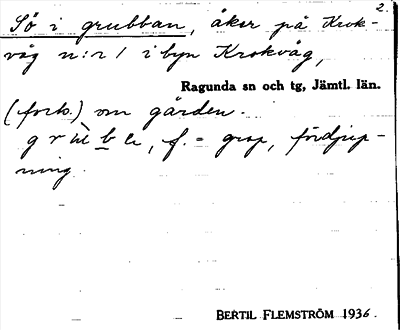 2.
Sö i grubban, åker på Krok-
våg n:r 1 i byn Krokvåg,
Ragunda sn och tg, Jämtl. län.
(forts.) om gården.
f. = grop, fördjup-
ning.
BERTIL FLEMSTRÖM 1936.